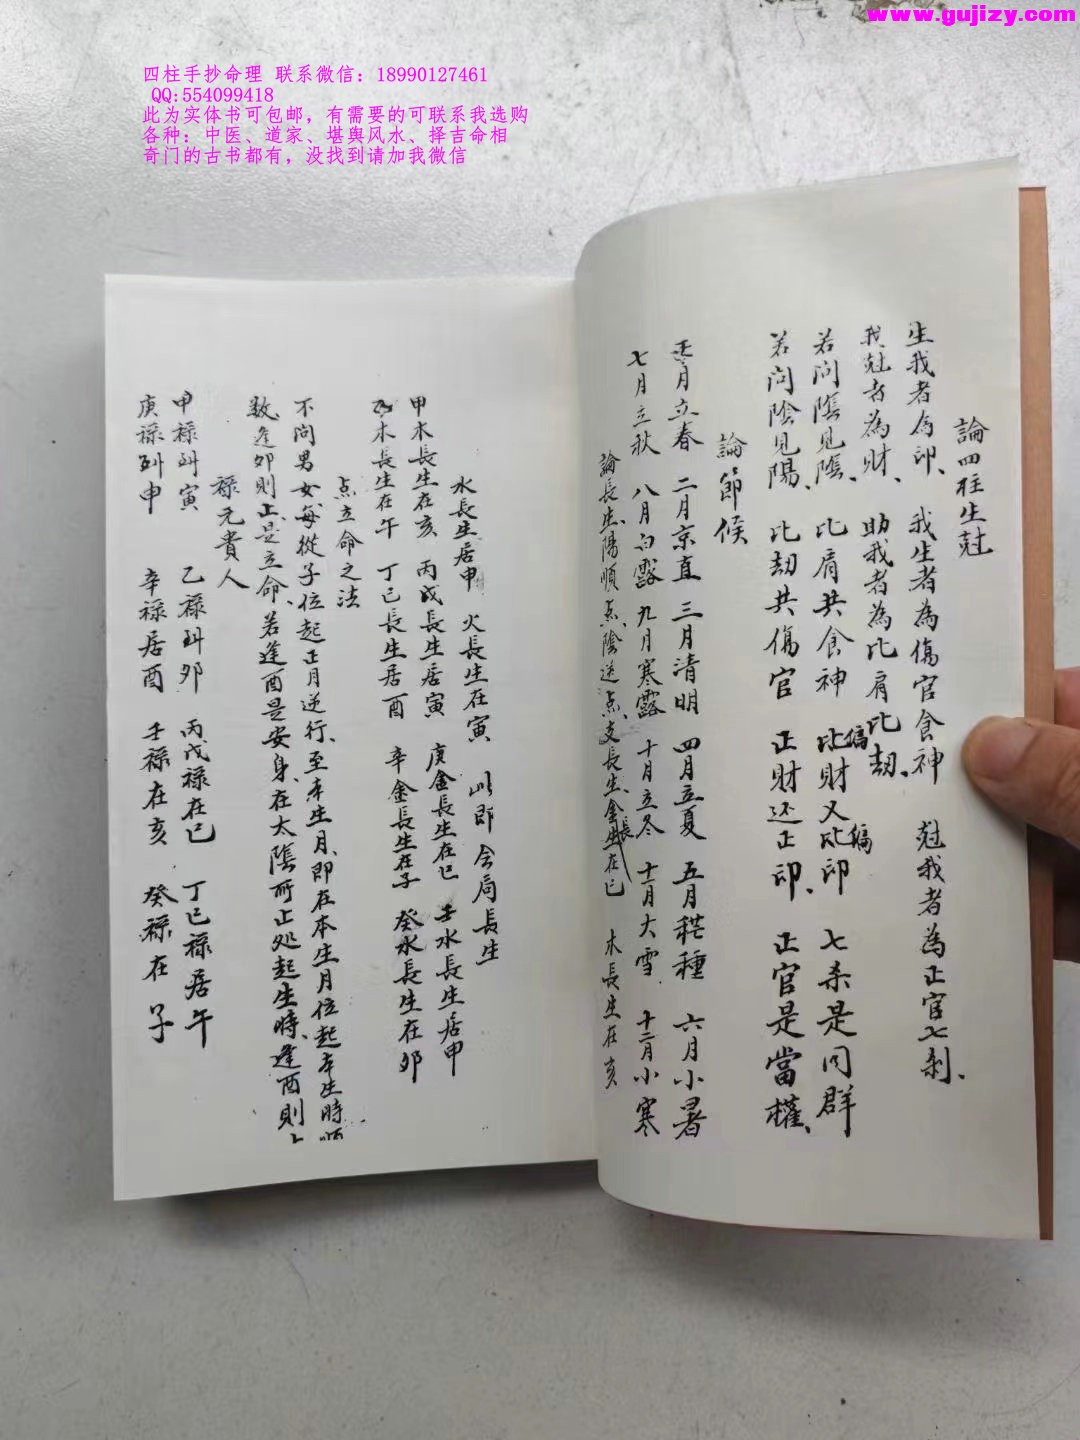 www.gujizy.com
四柱手抄命理 联系微信：18990127461
QQ:554099418
此为实体书可包邮，有需要的可联系我选购
各种：中医、道家、堪舆风水、择吉命相
奇门的古书都有，没找到请加我微信
論四柱生尅
生我者為印、 我生者為傷官食神 尅我者為正官七刹、
我尅者為財、 助我者為比肩比劫、
若问陰見陰、 比肩共食神 偏財又偏印 七杀是同群
若问陰見陽、 比劫共傷官 正財还正印、 正官是當權、
論節候
正月立春 二月京直 三月清明 四月立夏 五月芒種 六月小暑
七月立秋 八月白露 九月寒露 十月立冬 十一月大雪 十二月小寒
論長生、陽順点、陰逆点、支長生、金長生在巳 木長生在亥
水長生居申 火長生在寅 此即会局長生
甲木長生在亥 丙戊長生居寅 庚金長生在巳 壬水長生居申
乙木長生在午 丁己長生居酉 辛金長生在子 癸水長生在卯
点立命之法
不问男女、每從子位起正月逆行、至本生月、即在本生月位起本生時順
数逢卯則止、是立命、若逢酉是安身、在太陰所止处起生時、逢酉則止
禄元貴人
甲禄到寅 乙禄到卯 丙戊禄在巳 丁己禄居午
庚禄到申 辛禄居酉 壬禄在亥 癸禄在子